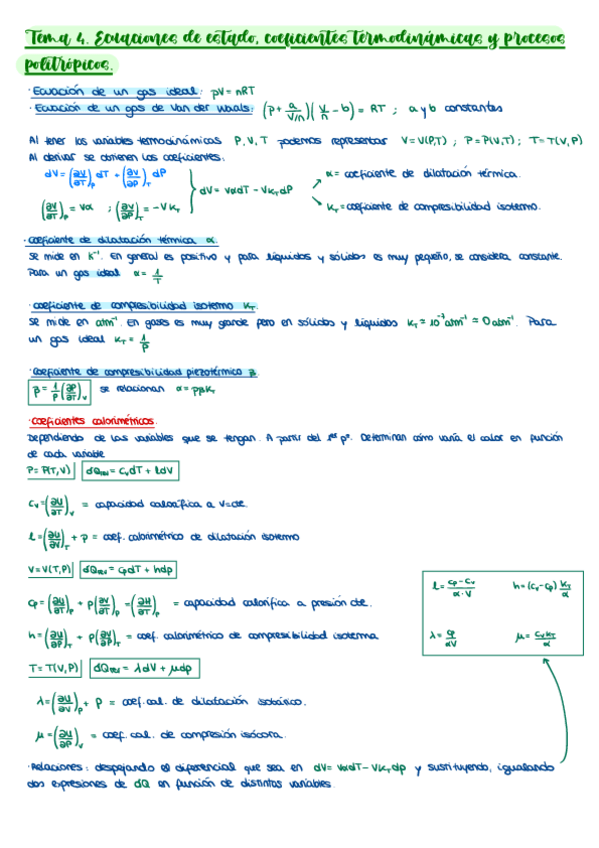 Tema 4. Ecuaciones de estado, coeficientes termodinámicas y procesos
politrópicos.
· Ecuación de un gas ideal: pV = nRT
· Ecuación de un gas de Van der Waals: (p + a/(V/n))(V/n - b) = RT ; a y b constantes
Al tener las variables termodinámicas P, V, T podemos representar V = V(P,T) ; P = P(V,T) ; T = T(V,P)
Al derivar se obtienen los coeficientes:
dV = (∂V/∂T)_P dT + (∂V/∂P)_T dP
(∂V/∂T)_P = Vα ; (∂V/∂P)_T = -V K_T
dV = VαdT - VK_T dP
α = coeficiente de dilatación térmica.
K_T = coeficiente de compresibilidad isotermo.
· Coeficiente de dilatación térmica α.
Se mide en K⁻¹. En general es positivo y para líquidos y sólidos es muy pequeño, se considera constante.
Para un gas ideal α = 1/T
· Coeficiente de compresibilidad isotermo K_T.
Se mide en atm⁻¹. En gases es muy grande pero en sólidos y líquidos K_T ≈ 10⁻⁷ atm⁻¹ ≈ 0 atm⁻¹. Para
un gas ideal K_T = 1/P
· Coeficiente de compresibilidad piezotérmico β.
β = 1/P (∂P/∂T)_V se relacionan α = pβK_T
· Coeficientes calorimétricos.
Dependiendo de las variables que se tengan. A partir del 1er pº. Determinan cómo varía el calor en función
de cada variable
P = P(T,V) dQ_rev = C_v dT + ldV
C_v = (∂U/∂T)_V = capacidad calorífica a V=cte.
l = (∂U/∂V)_T + p = coef. calorimétrico de dilatación isotermo
V = V(T,P) dQ_rev = C_p dT + hdp
C_p = (∂U/∂T)_P + p(∂V/∂T)_P = (∂H/∂T)_P = capacidad calorífica a presión cte.
h = (∂U/∂P)_T + p(∂V/∂P)_T = coef. calorimétrico de compresibilidad isoterma
T = T(V,P) dQ_rev = λdV + μdp
λ = (∂U/∂V)_P + P = coef. cal. de dilatación isobárico.
μ = (∂U/∂P)_V = coef. cal. de compresión isócora.
l = (C_p - C_v)/(α·V) h = (C_v - C_p) K_T/α
λ = C_p/(αV) μ = C_v K_T/α
· Relaciones: despejando el diferencial que sea en dV = VαdT - VK_T dp y sustituyendo, igualando
dos expresiones de dQ en función de distintas variables.